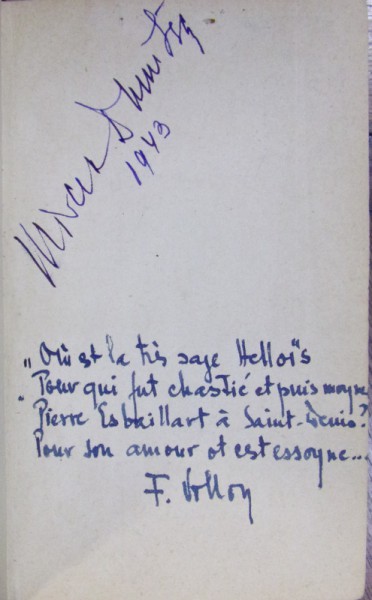 Mircea Dumitrescu
1943
„ Où est la très sage Helloïs
„ Pour qui fut chastié et puis moyne
Pierre Esbaillart à Saint-Denis?
Pour son amour ot cest essoyne...
F. Villon